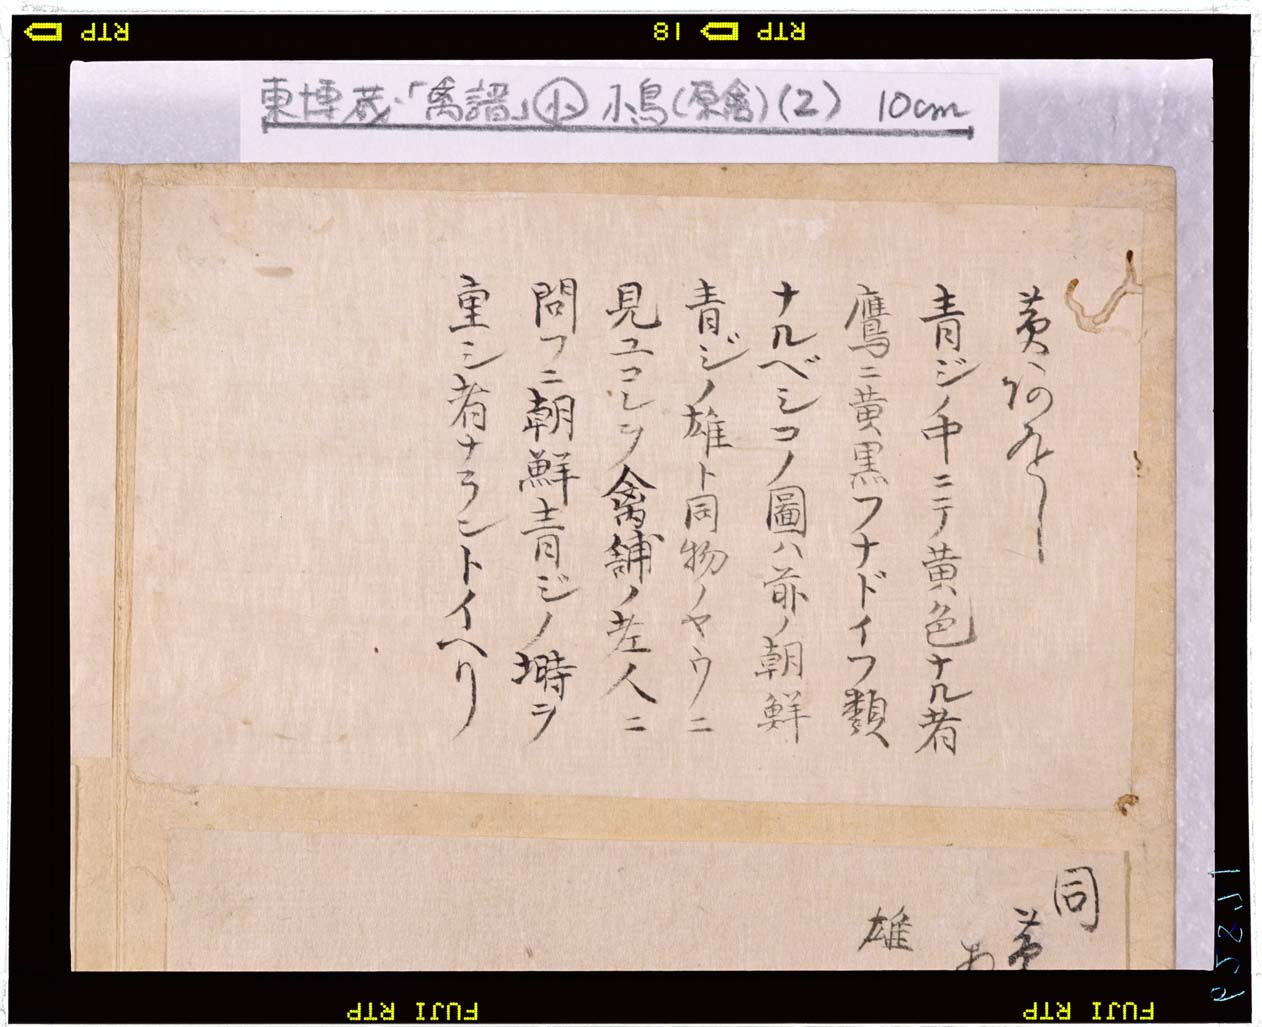 RTP
18
RTP
東博蔵「禽譜」小 小鳥(原禽)(2) 10cm
黄あをじ
青ジノ中ニテ黄色ナル者
鷹ニ黄黒フナドイフ類
ナルベシコノ圖ハ前ノ朝鮮
青ジノ雄ト同物ノヤウニ
見ユコレヲ禽舗ノ老人ニ
問フニ朝鮮青ジノ塒ヲ
重シ者ナラントイヘリ
同
黄
あ
雄
FUJI RTP
FUJI RTP